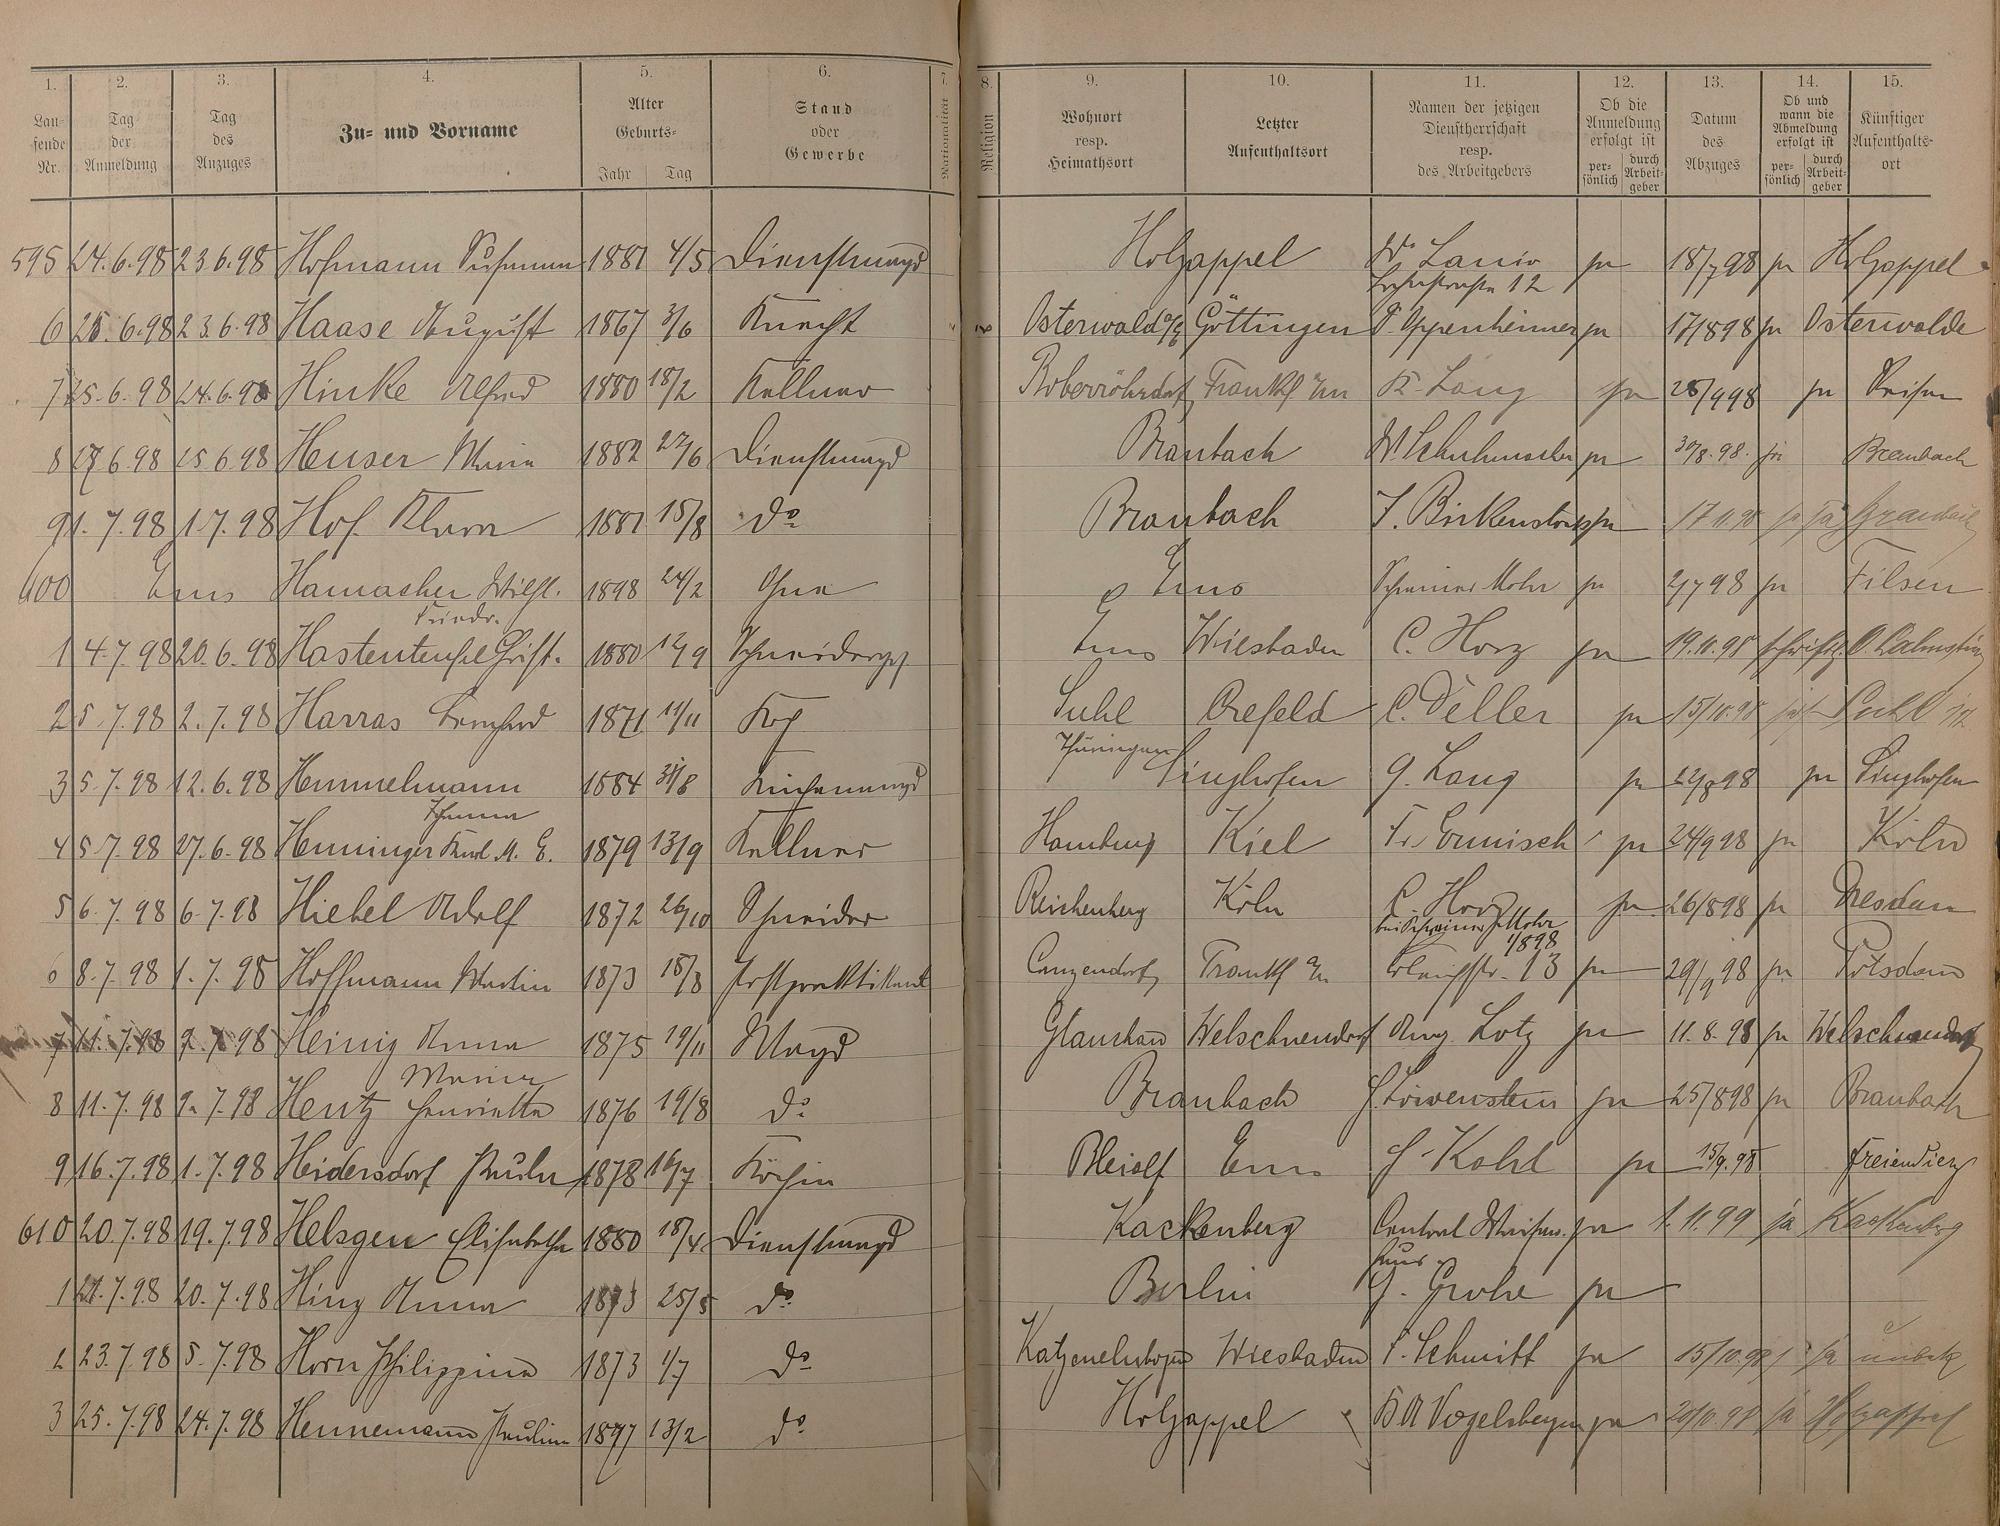 1. 2. 3. 4. 5. 6. 7. 8. 9. 10. 11. 12. 13. 14. 15.
Lau-fende Nr. Tag der Anmeldung Tag des Anzuges Zu- und Vorname Alter Geburts- Jahr Tag Stand oder Gewerbe Nationalität Religion Wohnort resp. Heimathsort Letzter Aufenthaltsort Namen der jetzigen Dienstherrschaft resp. des Arbeitgebers Ob die Anmeldung erfolgt ist per-sönlich durch Arbeit-geber Datum des Abzuges Ob und wann die Abmeldung erfolgt ist per-sönlich durch Arbeit-geber Künftiger Aufenthalts-ort
595 24.6.98 23.6.98 Hofmann 1881 4/5 Dienstmagd Holzappel W. ja 18/7 98 ja Holzappel
12
6 25.6.98 23.6.98 Haase August 1867 3/6 Knecht Osterwald Göttingen Oppenheimer ja 17/8 98 ja Osterwalde
7 25.6.98 24.6.98 Hinke Alfred 1880 18/2 Kellner Boberröhrsdorf Frankf a/m K. Lang ja 28/9 98 ja Reisen
8 27.6.98 25.6.98 Heuser Maria 1882 27/6 Dienstmagd Braubach W. Schuhmacher ja 30/8.98. ja Braubach
9 1.7.98 1.7.98 Hof Klara 1881 15/8 do Braubach J. Birkenstock ja 17.11.98 ja ja Braubach
600 Ems Hamacher Wilh. 1898 24/2 Ohne Ems Schreiner Mohr ja 2/7 98 ja Filsen
Friedr.
1 4.7.98 20.6.98 Christ. 1880 12/9 Schneidergs Ems Wiesbaden C. Horz ja 19.11.98 schriftl.
2 5.7.98 2.7.98 Harras Bernhard 1871 11/11 Koch Suhl Crefeld C. Deller ja 15/10.98 Suhl
Thüringen
3 5.7.98 12.6.98 Hemmelmann 1884 31/8 Küchenmagd Singhofen G. Lang ja 22/8 98 ja Singhofen
Johanna
4 5.7.98 27.6.98 Henninger Karl A. E. 1879 13/9 Kellner Hamburg Kiel Fr. Ermisch ja 24/9 98 ja Köln
5 6.7.98 6.7.98 Hiebel Adolf 1872 26/10 Schneider Reichenberg Köln C. Horz ja 26/8 98 ja Dresden
bei Schreiner Mohr
1/8 98
6 8.7.98 1.7.98 Hoffmann Martin 1873 18/3 Postpraktikant Canzendorf Frankf a/m 13 ja 29/9 98 ja Potsdam
7 11.7.98 9.7.98 Heinig Anna 1875 19/11 Magd Glauchau Welschneudorf Aug. Lotz ja 11.8.98 ja Welschneudorf
Maria
8 11.7.98 9.7.98 Hentz Henrietta 1876 19/8 do Braubach Löwenstein ja 25/8 98 ja Braubach
9 16.7.98 1.7.98 Heidersdorf Paula 1878 16/7 Köchin Bleialf Ems Kohl ja 15/9.98 Freiendiez
610 20.7.98 19.7.98 Helsgen Elisabetha 1880 18/4 Dienstmagd Kackenberg Central Waisen- ja 1.11.99 ja Kackenberg
haus
1 21.7.98 20.7.98 Hinz Anna 1873 25/5 do Berlin G. Grohe ja
2 23.7.98 5.7.98 Horn Philippina 1873 1/7 do Katzenelnbogen Wiesbaden Schmitt ja 15/10.98 ja unbek
3 25.7.98 24.7.98 Hennemann Paulina 1877 13/2 do Holzappel Vogelsberger ja 20/10.98 ja Holzappel